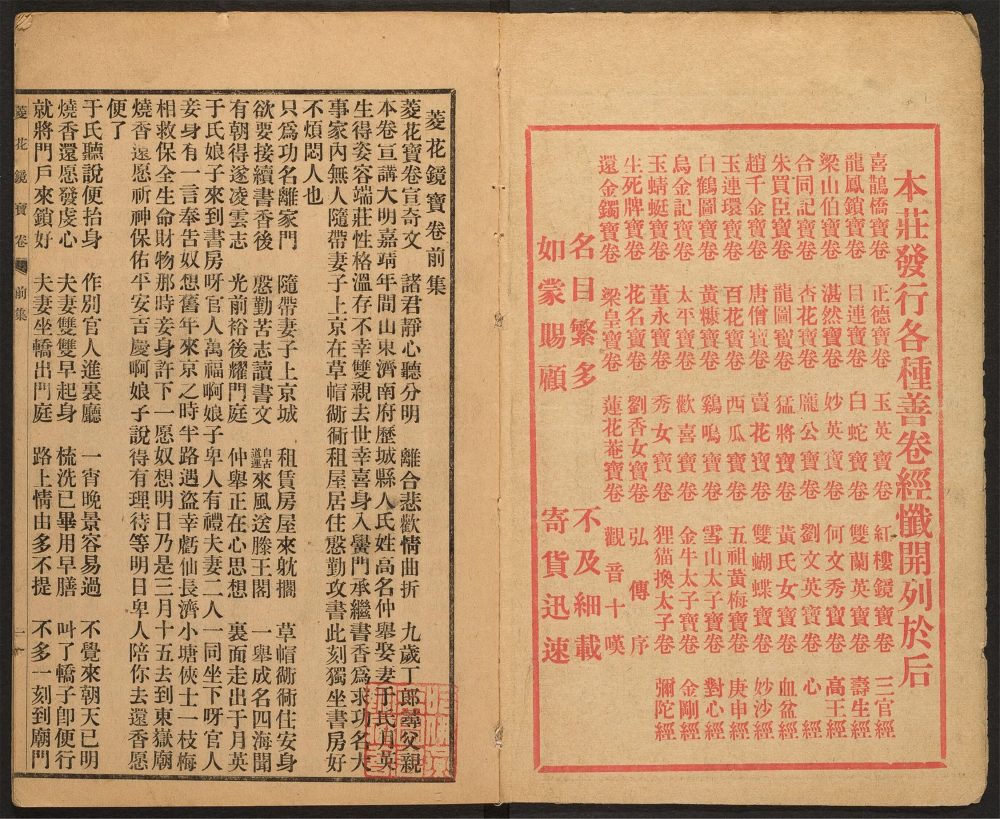 本莊發行各種善卷經懺開列於后
喜鵲橋寶卷 正德寶卷 玉英寶卷 紅樓鏡寶卷 三官經
龍鳳鎖寶卷 目連寶卷 白蛇寶卷 雙蘭英寶卷 壽生經
梁山伯寶卷 湛然寶卷 妙英寶卷 何文秀寶卷 高王經
合同記寶卷 杏花寶卷 龐公寶卷 劉文英寶卷 心經
朱買臣寶卷 龍圖寶卷 猛將寶卷 黃氏女寶卷 血盆經
趙千金寶卷 唐僧寶卷 賣花寶卷 雙蝴蝶寶卷 妙沙經
玉連環寶卷 百花寶卷 西瓜寶卷 五祖黃梅寶卷 庚申經
白鶴圖寶卷 黃糠寶卷 鷄鳴寶卷 雪山太子寶卷 對心經
烏金記寶卷 太平寶卷 歡喜寶卷 金牛太子寶卷 金剛經
玉蜻蜓寶卷 董永寶卷 秀女寶卷 狸猫換太子卷 彌陀經
生死牌寶卷 花名寶卷 劉香女寶卷 弘傳序
還金鐲寶卷 梁皇寶卷 蓮花菴寶卷 觀音十嘆
名目繁多 不及細載
如蒙賜顧 寄貨迅速
菱花鏡寶卷前集
菱花寶卷宣奇文 諸君靜心聽分明 離合悲歡情曲折 九歲丁郎尋父親
本卷宣講大明嘉靖年間山東濟南府歷城縣人氏姓高名仲舉娶妻于氏月英
生得姿容端莊性格溫存不幸雙親去世幸喜身入黌門承繼書香爲求功名大
事家內無人隨帶妻子上京在草帽衚衕租屋居住慇勤攻書此刻獨坐書房好
不煩悶人也
只爲功名離家門 隨帶妻子上京城 租賃房屋來躭擱 草帽衚衕住安身
欲要接續書香後 慇勤苦志讀書文 自古道運來風送滕王閣 一舉成名四海聞
有朝得遂凌雲志 光前裕後耀門庭 仲舉正在心思想 裏面走出于月英
于氏娘子來到書房呀官人萬福啊娘子卑人有禮夫妻二人一同坐下呀官人
妾身有一言奉告奴想舊年來京之時半路遇盜幸虧仙長濟小塘俠士一枝梅
相救保全生命財物那時妾身許下一愿奴想明日乃是三月十五去到東嶽廟
燒香還愿祈神保佑平安吉慶啊娘子說得有理待等明日卑人陪你去還香愿
便了
于氏聽說便抬身 作別官人進裏廳 一宵晚景容易過 不覺來朝天已明
燒香還愿發虔心 夫妻雙雙早起身 梳洗已畢用早膳 叫了轎子即便行
就將門戶來鎖好 夫妻坐轎出門庭 路上情由多不提 不多一刻到廟門
菱花鏡寶卷 前集 一